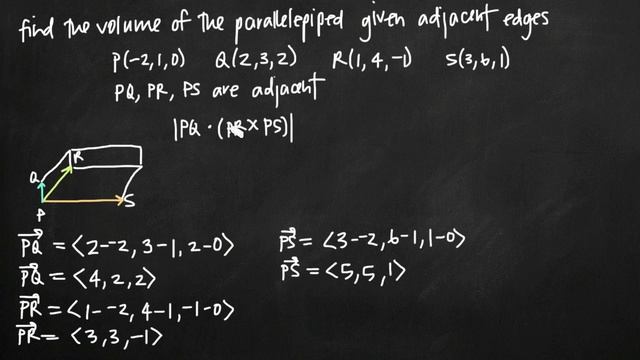 find the volume of the parallelepiped given adjacent edges
P(-2,1,0) Q(2,3,2) R(1,4,-1) S(3,6,1)
PQ, PR, PS are adjacent
|PQ · (PR × PS)|
R
Q
P
S
PQ = <2--2, 3-1, 2-0>
PQ = <4,2,2>
PR = <1--2, 4-1, -1-0>
PR = <3,3,-1>
PS = <3--2, 6-1, 1-0>
PS = <5,5,1>